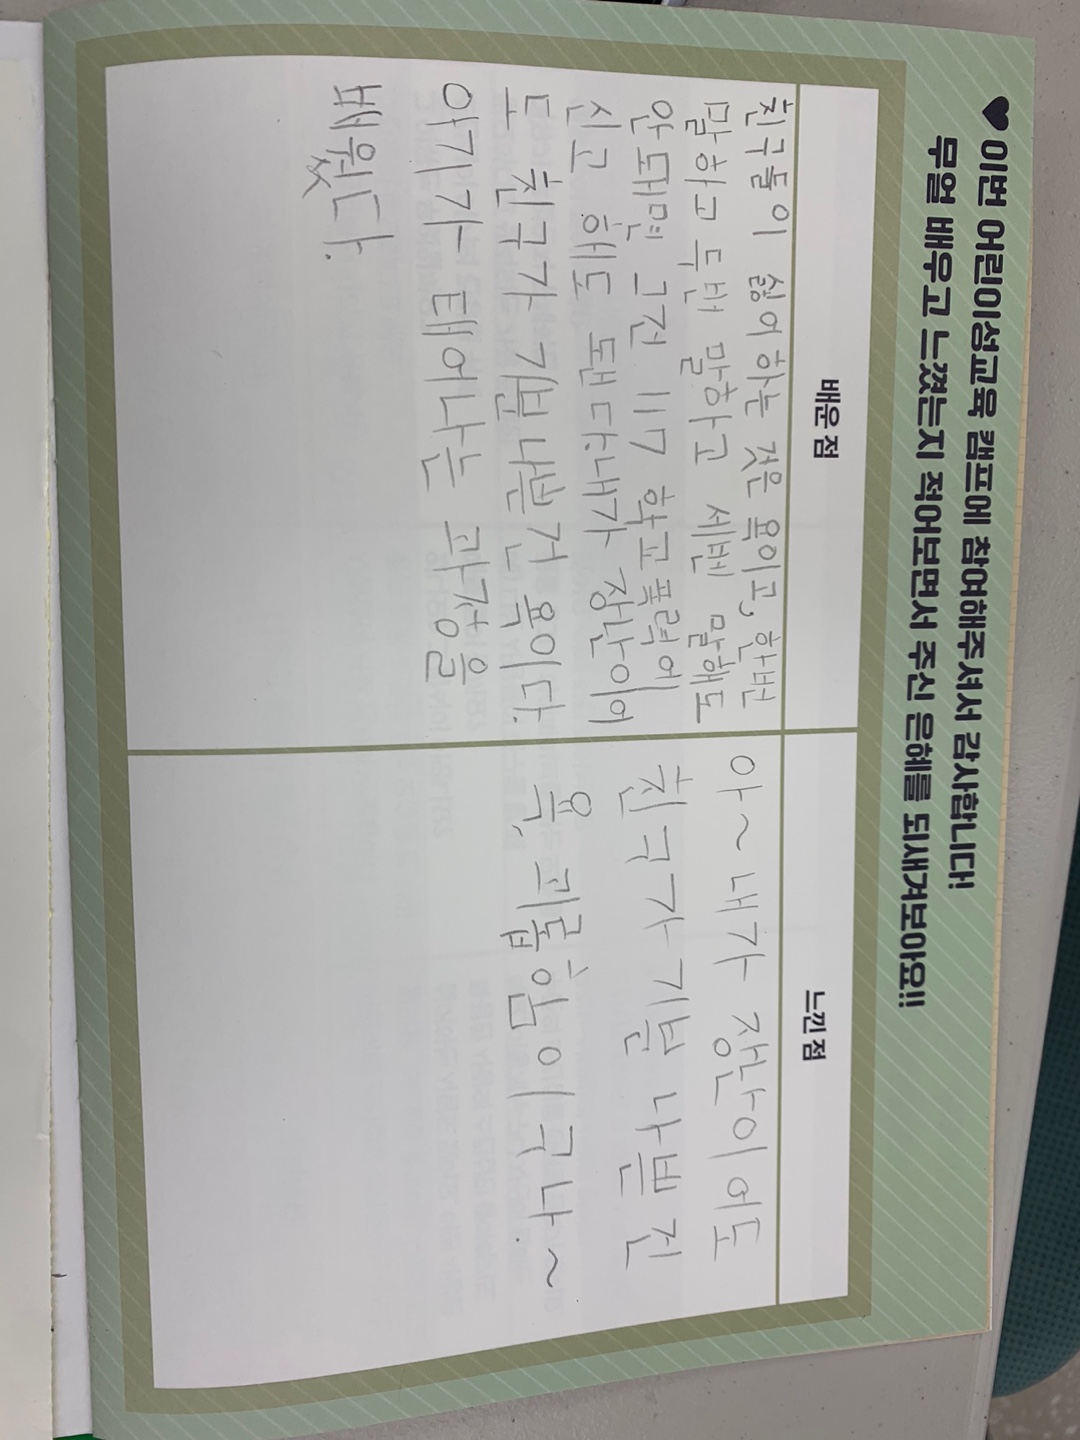 ♥ 이번 어린이성교육 캠프에 참여해주셔서 감사합니다!
무얼 배우고 느꼈는지 적어보면서 주신 은혜를 되새겨보아요!!
배운 점
친구들이 싫어하는 것은 욕이고, 한번
말하고 두번 말하고 세번 말해도
안돼면 그건 117 학교폭력에
신고 해도 됀다. 내가 장난이어
도 친구가 기분 나쁜건 욕이다.
아기가 태어나는 과정을
배웠다.
느낀 점
아~ 내가 장난이어도
친구가 기분 나쁜 건
욕, 괴롭임이구나.~